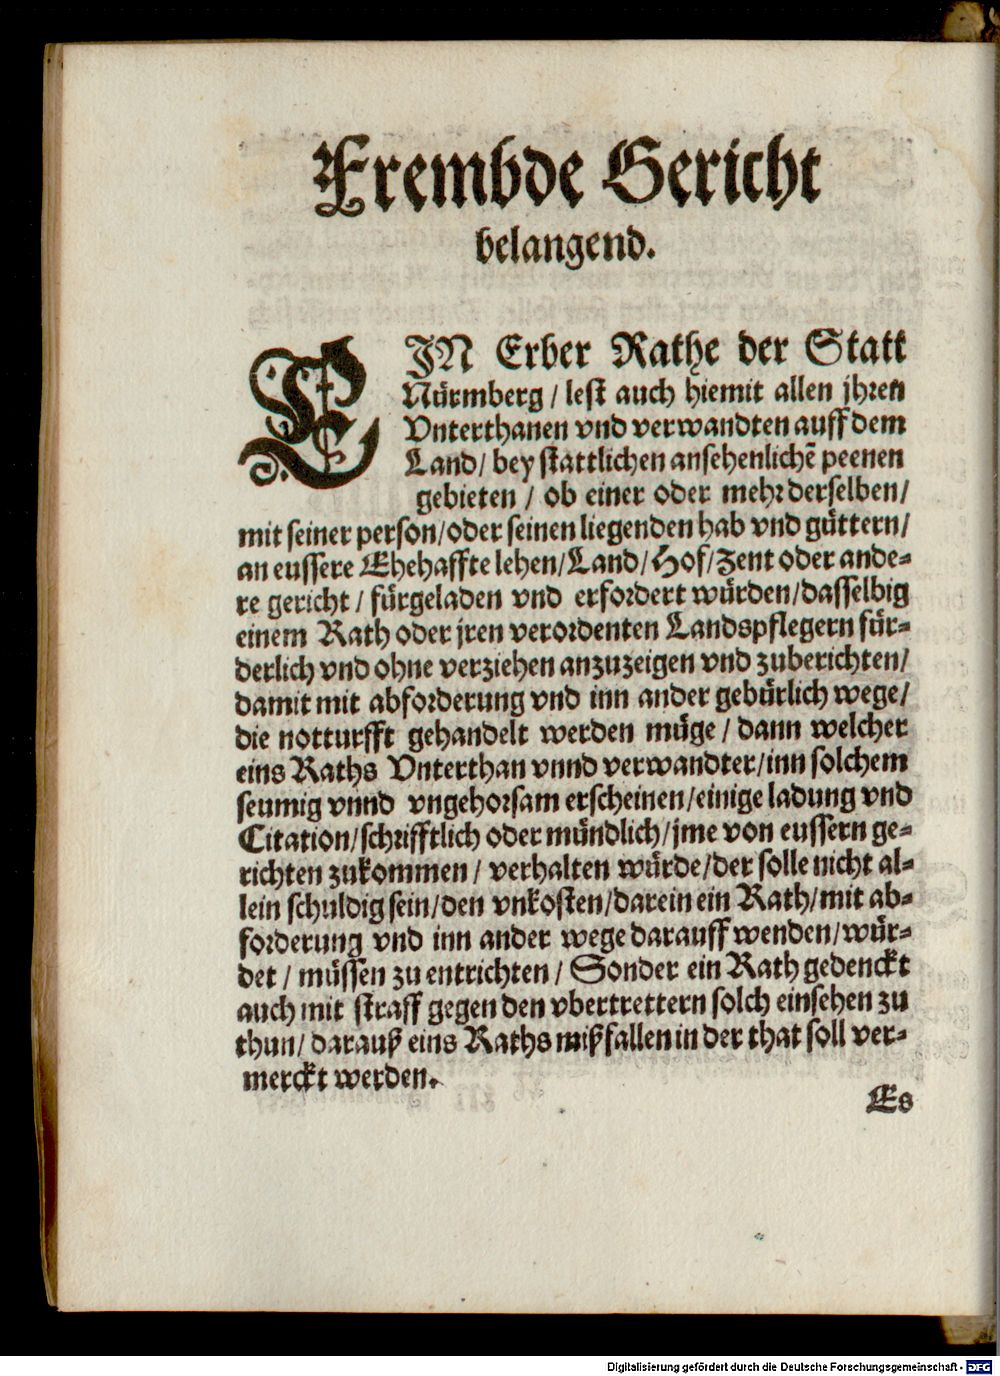 Frembde Gericht
belangend.
EIN Erber Rathe der Statt
Nürmberg / lest auch hiemit allen jhren
Vnterthanen vnd verwandten auff dem
Land / bey stattlichen ansehenlichẽ peenen
gebieten / ob einer oder mehr derselben /
mit seiner person / oder seinen liegenden hab vnd güttern /
an eussere Ehehaffte lehen / Land / Hof / Zent oder ande-
re gericht / fürgeladen vnd erfordert würden / dasselbig
einem Rath oder jren verordenten Landspflegern für-
derlich vnd ohne verziehen anzuzeigen vnd zuberichten /
damit mit abforderung vnd inn ander gebürlich wege /
die notturfft gehandelt werden müge / dann welcher
eins Raths Vnterthan vnnd verwandter / inn solchem
seumig vnnd vngehorsam erscheinen / einige ladung vnd
Citation / schrifftlich oder mündlich / jme von eussern ge-
richten zukommen / verhalten würde / der solle nicht al-
lein schuldig sein / den vnkosten / darein ein Rath / mit ab-
forderung vnd inn ander wege darauff wenden / wür-
det / müssen zu entrichten / Sonder ein Rath gedenckt
auch mit straff gegen den vbertrettern solch einsehen zu
thun / darauß eins Raths mißfallen in der that soll ver-
merckt werden.
Es
Digitalisierung gefördert durch die Deutsche Forschungsgemeinschaft - DFG